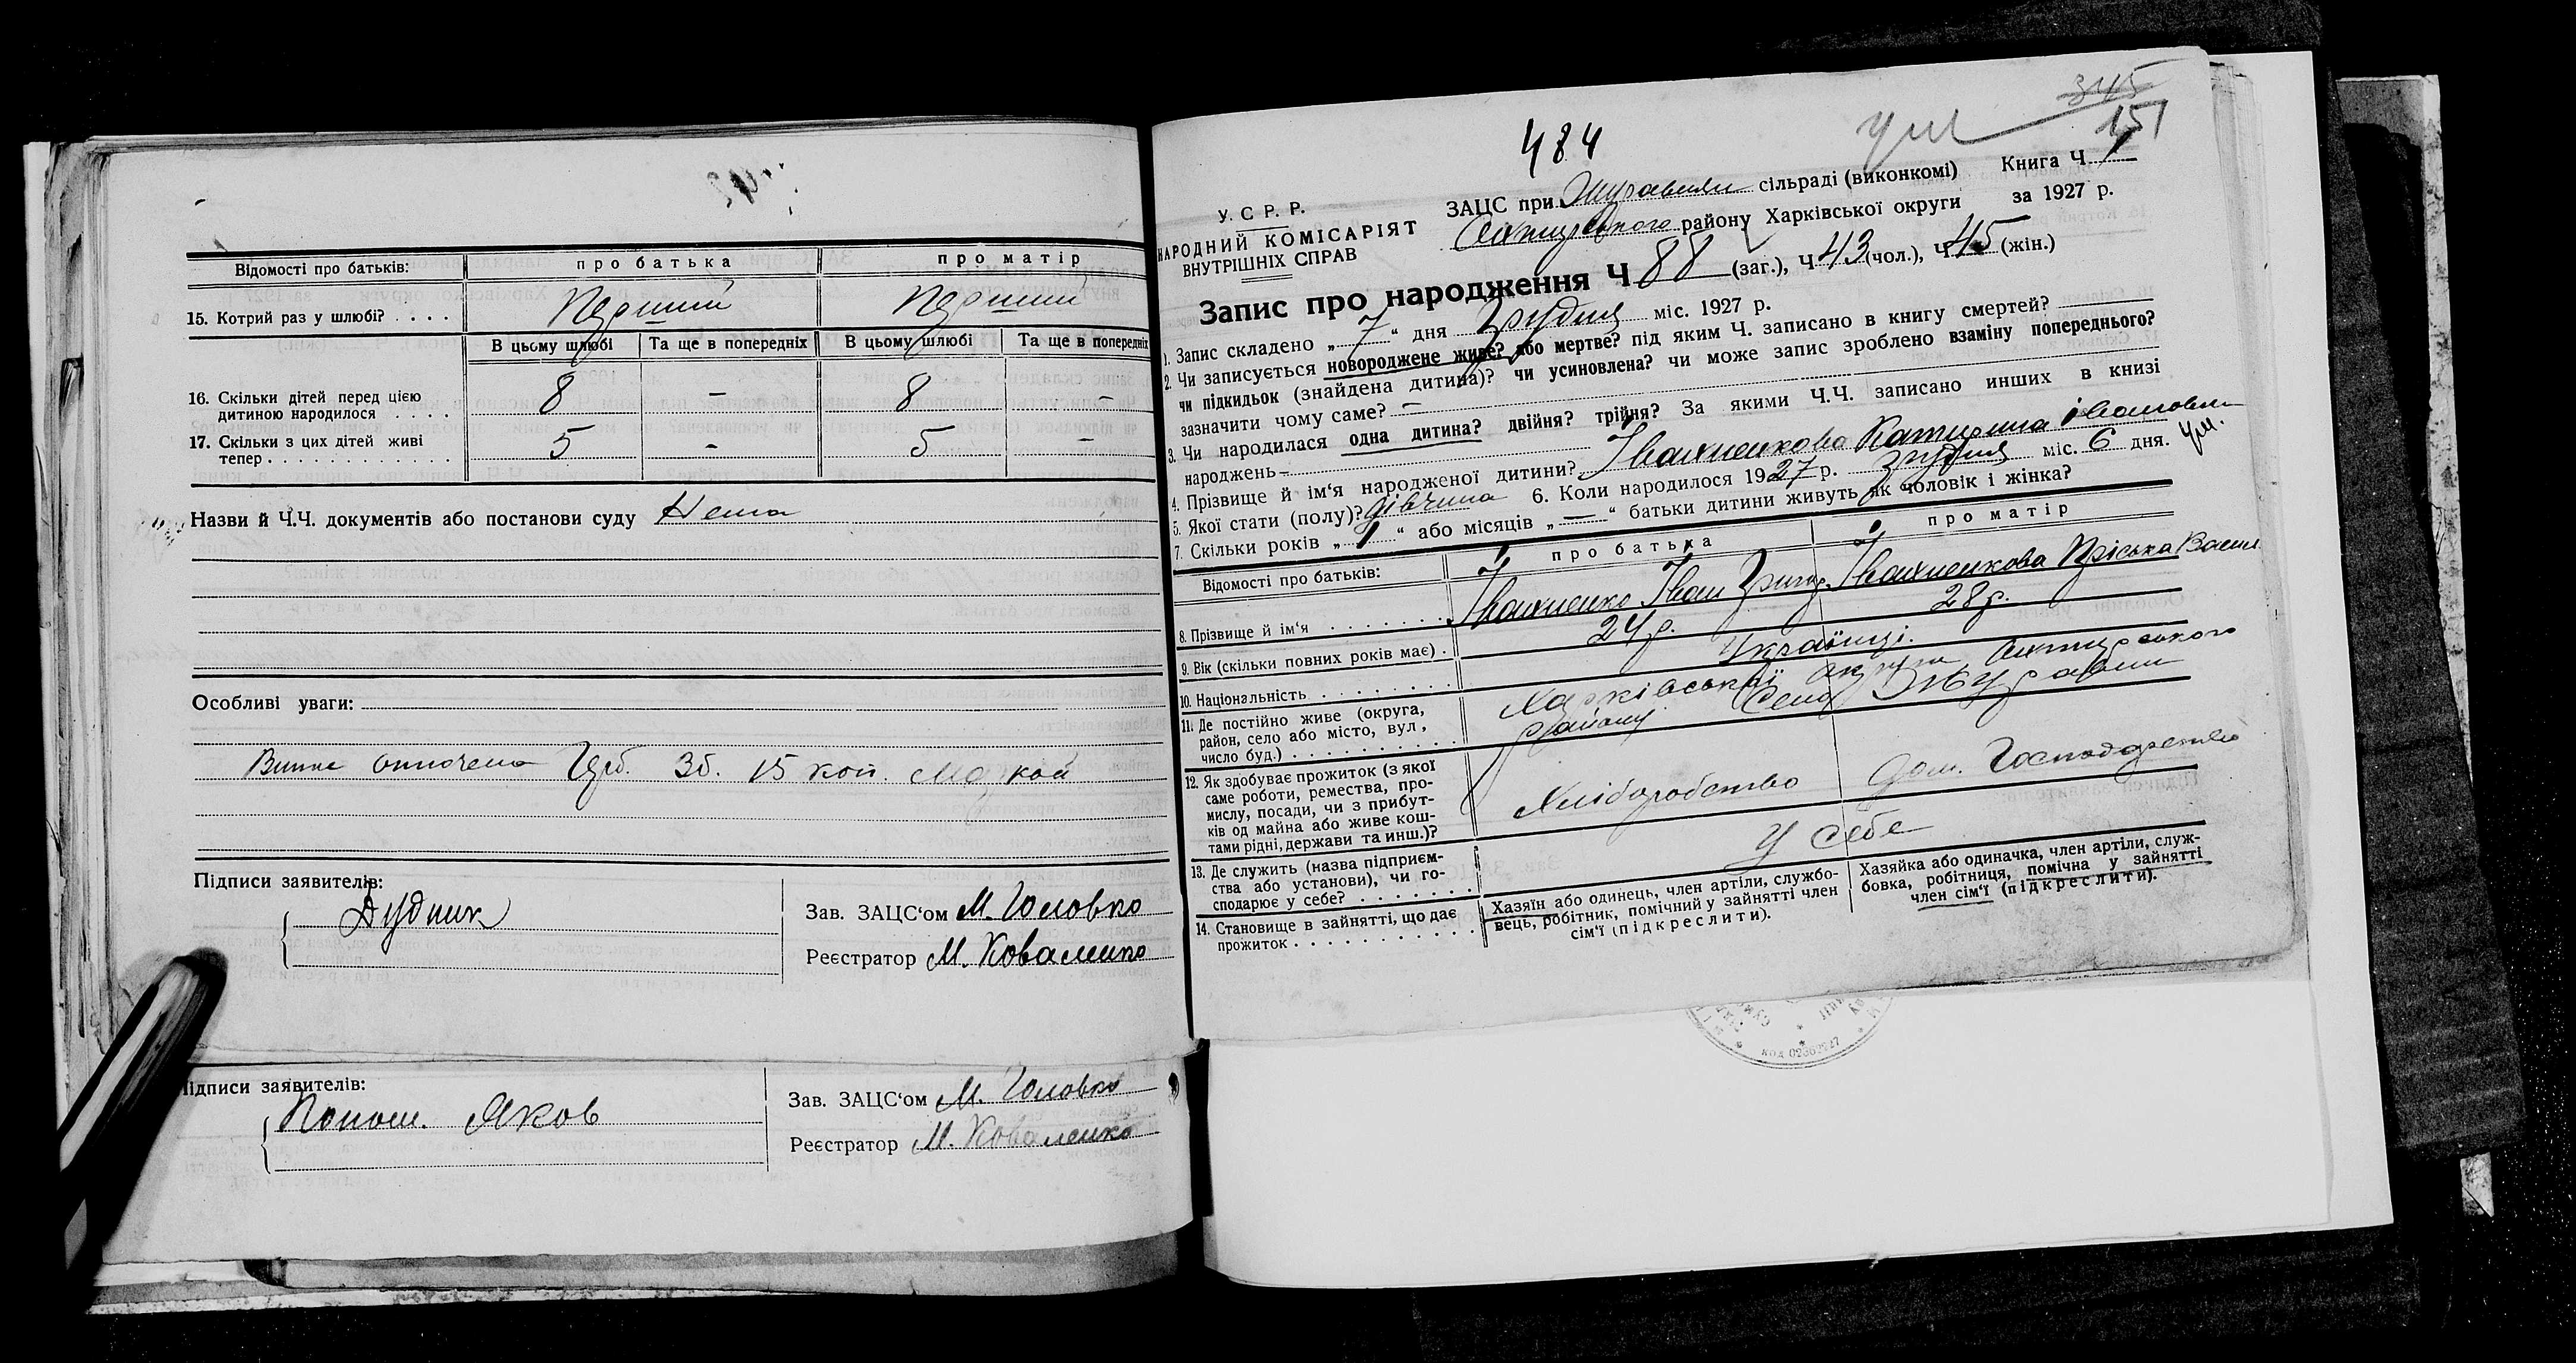 Відомості про батьків: про батька про матір
15. Котрий раз у шлюбі? . . . . Перший Перший
В цьому шлюбі Та ще в попередніх В цьому шлюбі Та ще в попередніх
16. Скільки дітей перед цією
дитиною народилося . . . . 8 – 8 –
17. Скільки з цих дітей живі
тепер . . . . . . . . . . . . 5 - 5 –
Назви й Ч.Ч. документів або постанови суду Нема
Особливі уваги:
Герб. Зб. 15 коп. Маркой
Підписи заявителів:
Дудник
Зав. ЗАЦС‘ом М. Головко
Реєстратор М. Коваленко
Підписи заявителів:
Яков
Зав. ЗАЦС‘ом М. Головко
Реєстратор М. Коваленко
345
151
484
У. С. Р. Р.
НАРОДНИЙ КОМІСАРІЯТ
ВНУТРІШНІХ СПРАВ
ЗАЦС при Журавли сільраді (виконкомі) Книга Ч. 1
Охтирського району Харківської округи за 1927 р.
Запис про народження Ч 88 (заг.), Ч 43 (чол.), Ч 45 (жін.)
1. Запис складено „7“ дня Грудня міс. 1927 р.
2. Чи записується новороджене живе? або мертве? під яким Ч. записано в книгу смертей?
чи підкидьок (знайдена дитина)? чи усиновлена? чи може запис зроблено взаміну попереднього?
зазначити чому саме? –
3. Чи народилася одна дитина? двійня? трійня? За якими Ч.Ч. записано инших в книзі
народжень –
4. Прізвище й ім‘я народженої дитини? Івахненкова Катирина Івановна
5. Якої стати (полу)? дівчина 6. Коли народилося 1927 р. Грудня міс. 6 дня.
7. Скільки років „1“ або місяців „—“ батьки дитини живуть як чоловік і жінка?
Відомості про батьків: про батька про матір
8. Прізвище й ім‘я . . . . . . . Івахненко Іван Григор. Івахненкова Пріська Васил
9. Вік (скільки повних років має) . 24 р. 28 р.
10. Національність . . . . . . . . . Українці.
11. Де постійно живе (округа,
район, село або місто, вул,
число буд.) . . . . . . . . . . Харківської округи Охтирського
району Село Журавли
12. Як здобуває прожиток (з якої
саме роботи, ремества, про-
мислу, посади, чи з прибут-
ків од майна або живе кош-
тами рідні, держави та инш.)? Хліборобство Дом. Господарство
13. Де служить (назва підприєм-
ства або установи), чи го-
сподарює у себе? . . . . . . . У себе
14. Становище в зайнятті, що дає
прожиток . . . . . . . . . . .
Хазяїн або одинець, член артіли, службо-
вець, робітник, помічний у зайнятті член
сім‘ї (підкреслити).
Хазяйка або одиначка, член артіли, служ-
бовка, робітниця, помічна у зайнятті
член сім‘ї (підкреслити).